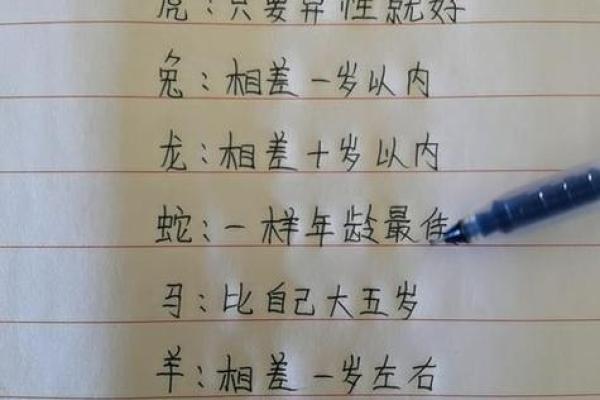 虎：只要异性就好
兔：相差一岁以内
龙：相差十岁以内
蛇：一样年龄最佳
马：比自己大五岁
羊：相差一岁左右